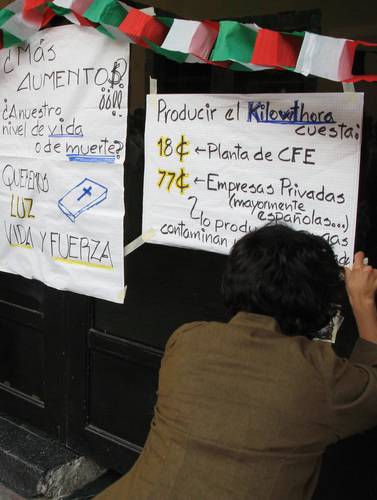 ¿Más
AUMENTO$
¡¡¡¡
¿A nuestro
nivel de vida
o de muerte?
QUEREMOS
LUZ
VIDA Y FUERZA
Producir el Kilowithora
cuesta:
18¢ ← Planta de CFE
77¢ ← Empresas Privadas
(mayormente
españolas...)
contaminan